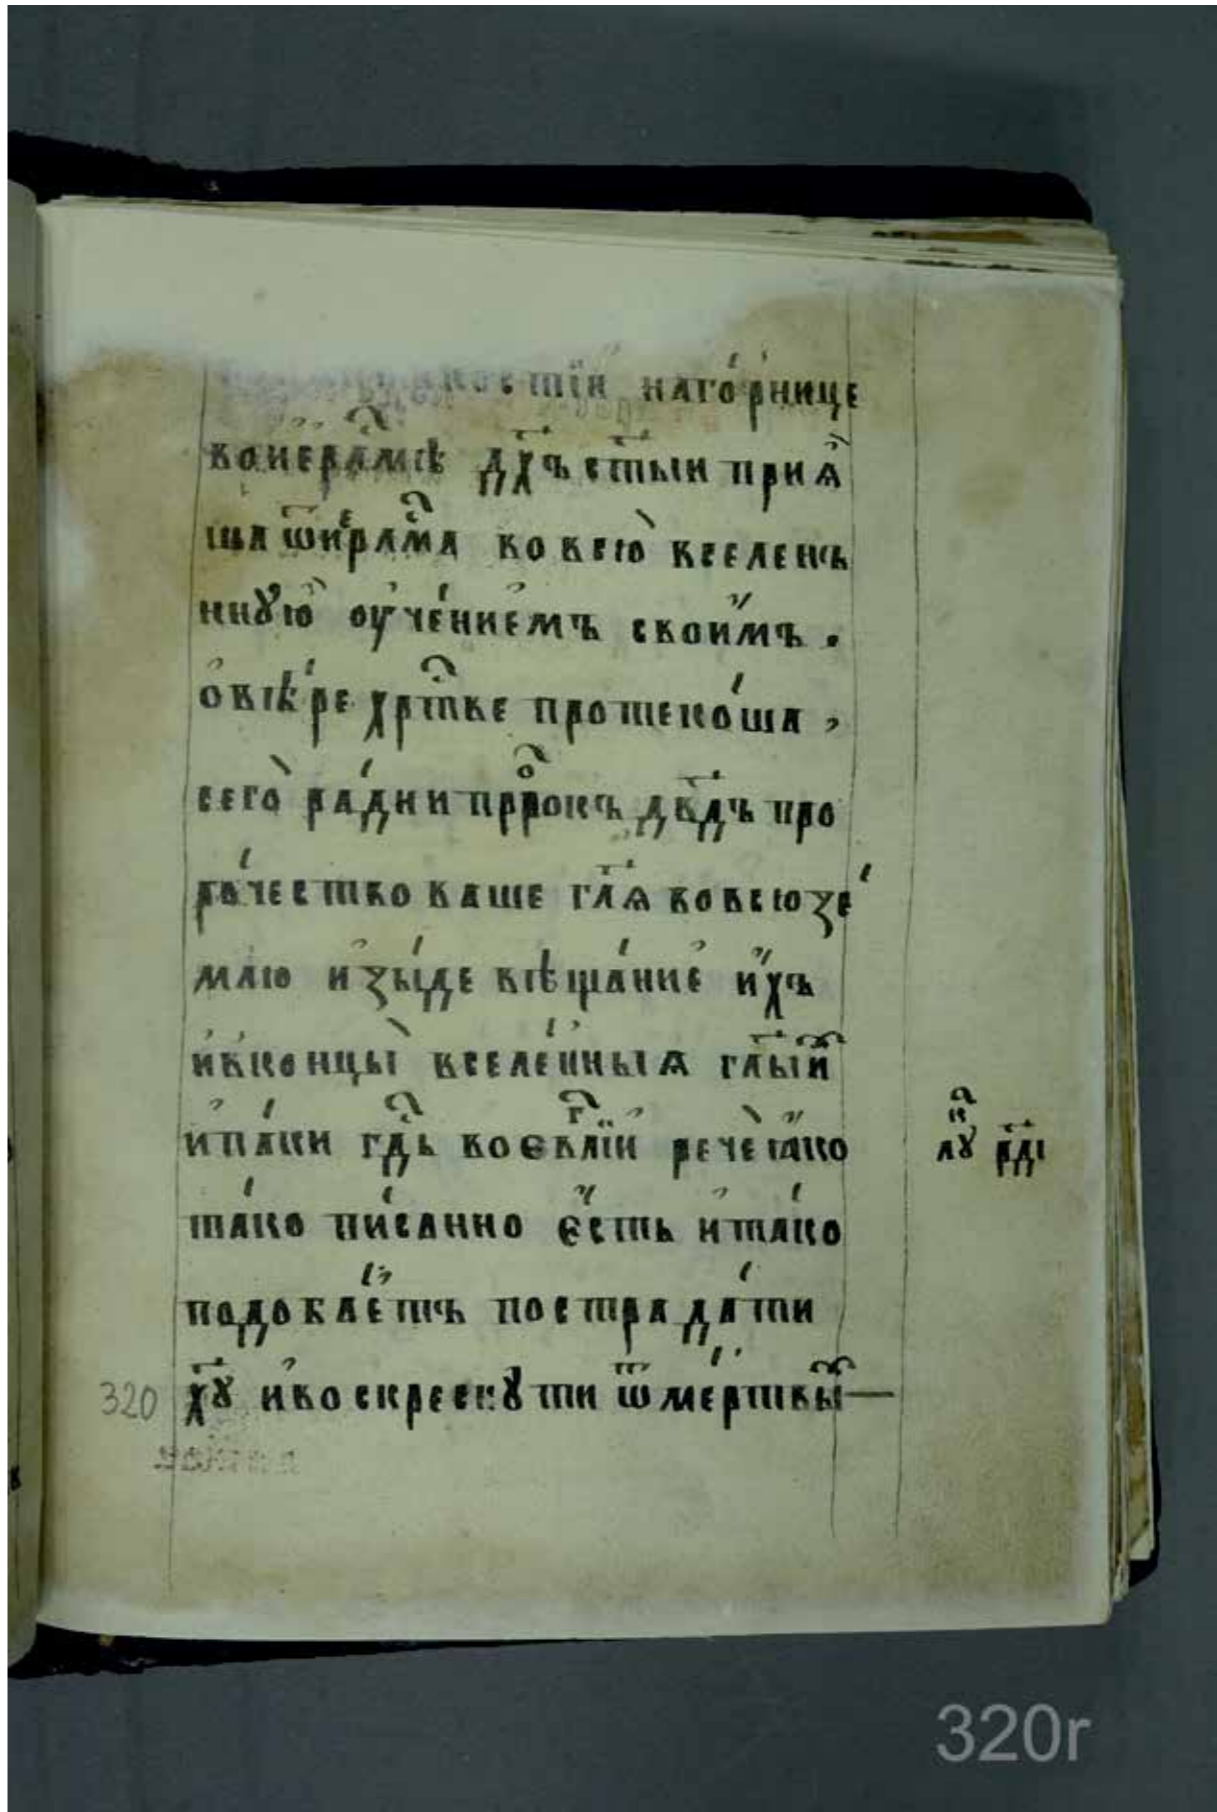 нагорнице
воиер҇лмѣ дх҃ъ ст҃ыи прїѧ
ша ѿиер҇лма во всю вселенъ
нꙋю оучениемъ своимъ.
овѣре хрт҇ве протекоша,
сего радии прⷪ҇рокъ дв҃дъ про
рочество ваше гл҃ѧ вовсюзе
млю изыде вѣщание ихъ
ивконцы вселенныѧ гл҃ыи
ипаки гд҇ь воеѵⷢ҇лїи рече ꙗко
тако писанно есть итако
подобаетъ пострадати
320 хꙋ҃ ивоскреснꙋти ѿмертвыⷯ
лꙋⷦ҇ рд҃і
320r